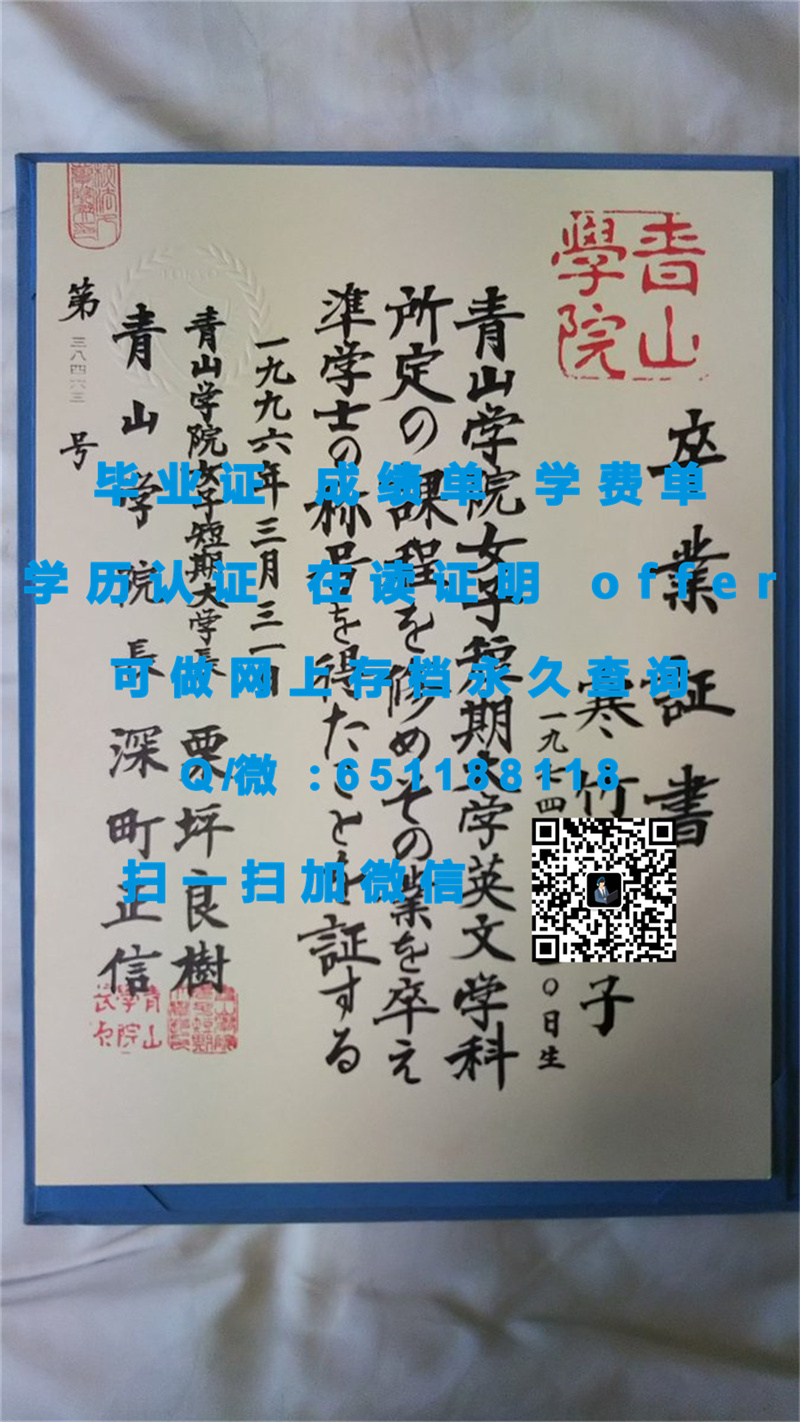 卒業証書
青山
學院
寒竹
子
一九七四
〇日生
青山学院女子短期大学英文学科
所定の課程を修めその業を卒え
準学士の称号を得たことを証する
一九九六年三月三一日
青山学院女子短期大学長 栗坪良樹
青山学院長 深町正信
第三八四六三号
毕业证 成绩单 学费单
学历认证 在读证明 offer
可做网上存档永久查询
Q/微:651188118
扫一扫加微信